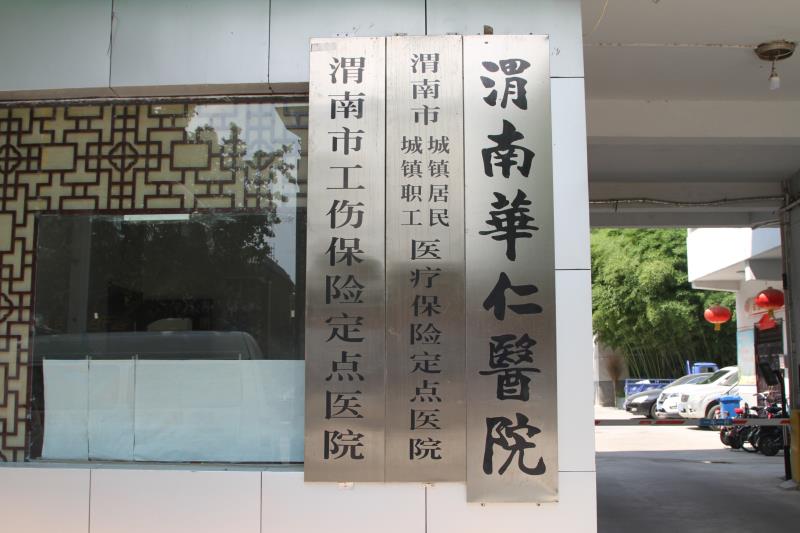 渭南華仁醫院
渭南市城镇居民城镇职工医疗保险定点医院
渭南市工伤保险定点医院